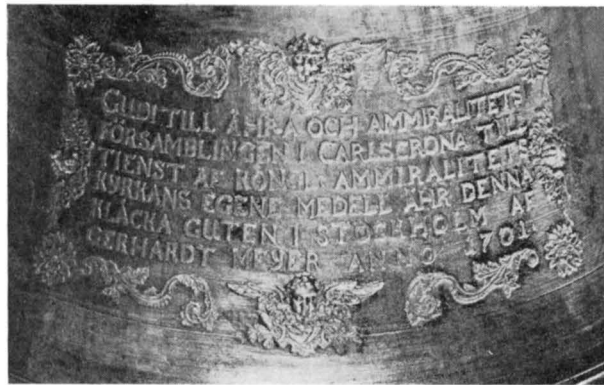 GUDI TILL ÄHRA OCH AMMIRALITETS
FÖRSAMBLINGEN I CARLSCRONA TILL
TIENST AF KÖNGL. AMMIRALITETS
KYRKANS EGENE MEDELL ÄHR DENNA
KLÅCKA GUTEN I STOCKHOLM AF
GERHARDT MEYER ANNO 1701